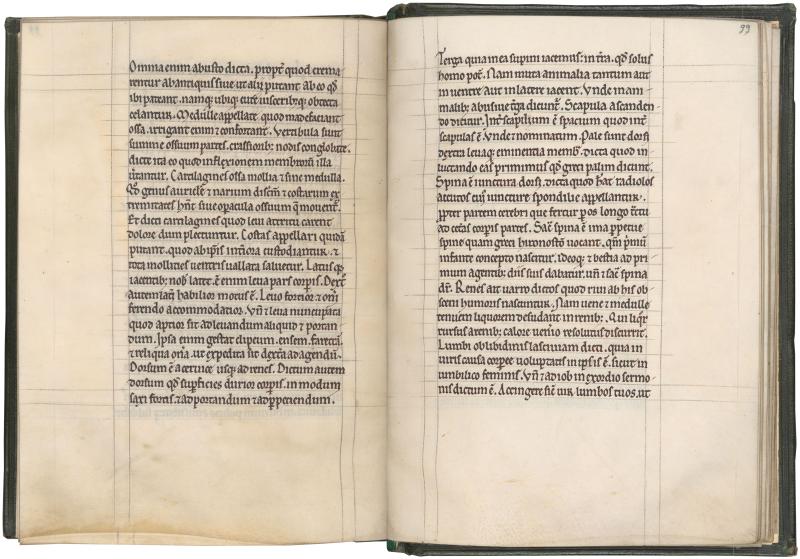 Omnia enim ab usto dicta. ppt̃ quod crema
rentur ab antiquis siue ut alij putant ab eo qđ
ibi pateant. namq; ubiq; cute uisceribq; obtecta
celantur. Medulle appellate. quod madefaciant
ossa. irrigant enim ⁊ confortant. Vertibula sunt
summe ossium partes. crassiorib; nodis conglobate.
dicte ita eo quod in flexionem membrorũ illa
uertantur. Cartilagines ossa mollia ⁊ sine medulla.
Qđ genus auricle ⁊ narium ⁊ costarum ex
tremitates hñt siue opercula ossium q̃ mouent̃.
Et dicti cartilagines quod leui attritu carent
dolore dum plectuntur. Costas appellari quidã
putant. quod ab ipsis int̃iora custodiantur. ⁊
tota mollities uentris uallata saluetur. Latus qđ
iacentib; nob latet. ẽ enim leua pars corpis. Dext̃
autem lati habilior motus ẽ. Leuo fortior ⁊ oñi
ferendo accommodatior. Vñ ⁊ leua nuncupata
quod aptior sit ad leuandum aliquid ⁊ portan
dum. Ipsa enim gestat clipeum. ensem. faretrã.
⁊ reliqua oñra. ut expedita sit dext̃a ad agendũ.
Dorsum ẽ a ceruice usq; ad renes. Dictum autem
dorsum qđ supficies durior corpis. in modum
saxi fortis. ⁊ ad portandum ⁊ ad ppetiendum.
99
Terga quia in ea supini iacemus. in tr̃a. qđ solus
homo pot̃. Nam muta animalia tantum aut
in uentre aut in latere iacent. Vnde in ani
malib; abusiue t̃ga dicunt̃. Scapula a scanden
do dicitur. Int̃scapilium ẽ spacium quod int̃
scapulas ẽ Vnde ⁊ nominatum. Pale sunt dorsi
dextra leuaq; eminentia memb̃. dicta quod in
luctando eas primimus qđ greci palim dicunt.
Spina ẽ iunctura dorsi. dicta quod hat radiolos
acutos cuj; iuncture spondilie appellantur.
ppter partem cerebri que fertur p os longo t̃ctu
ad cetas corpis partes. Sac̃ spina ẽ ima ppetue
spine quam greci uocant. qm̃ primũ
infante concepto nascitur. ideoq; ⁊ bestia ad pri
mum a gentib; diis suis dabatur. uñ ⁊ sac̃ spina
dr̃. Renes ait uarro dictos quod riui ab his ob
sceni humoris nascuntur. Nam uene ⁊ medulle
tenuem liquorem desudant in renib;. Qui liqr̃
rursus a renib; calore uenerio resolutus discurrit.
Lumbi ob libidinis lasciuiam dicti. quia in
uiris causa corpee uoluptatis in ipsis ẽ. sicut in
umbilico feminis. Vñ ⁊ ad iob in exordio sermo
nis dictum ẽ. Accingere sic̃ uir lumbos tuos. ut